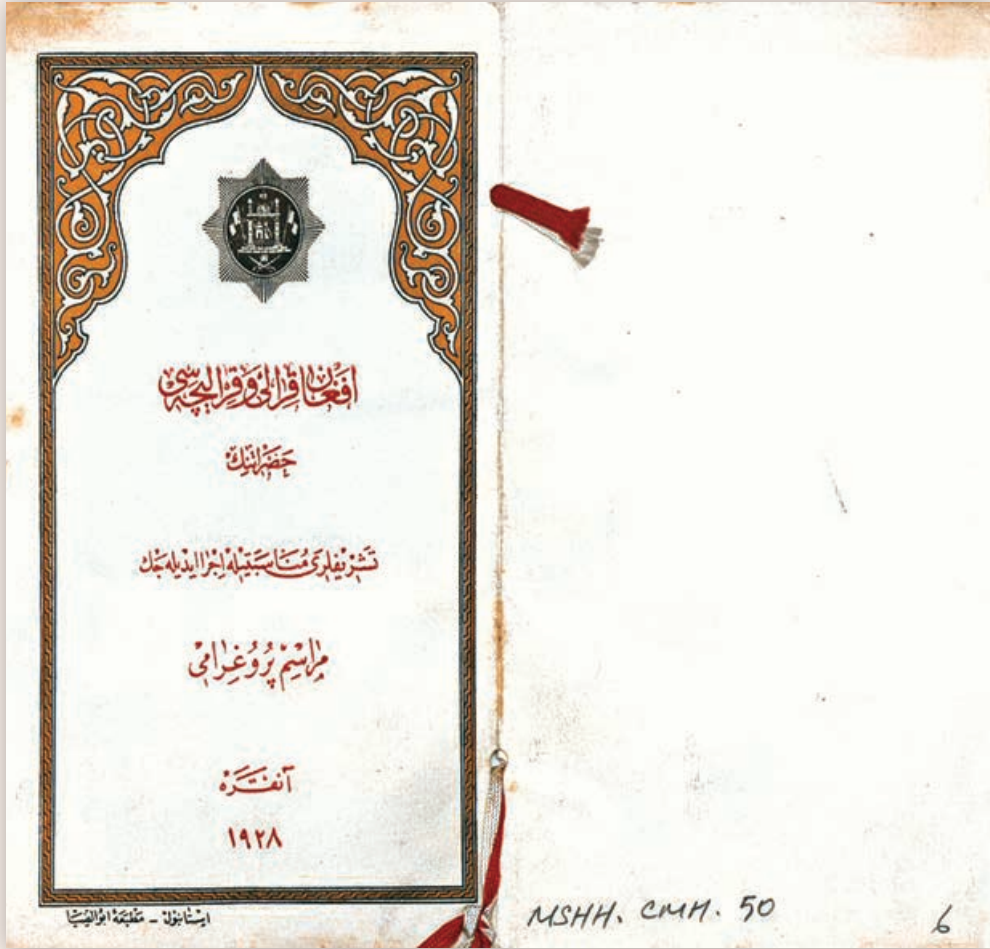 افغان قرالی و قرالیچه‌سی
حضراتنك
تشریفلری مناسبتیله اجرا ایدیله‌جك
مراسم پروغرامی
آنقره
١٩٢٨
استانبول - مطبعهٔ ابوالضیا
MSHH. CMH. 50
6